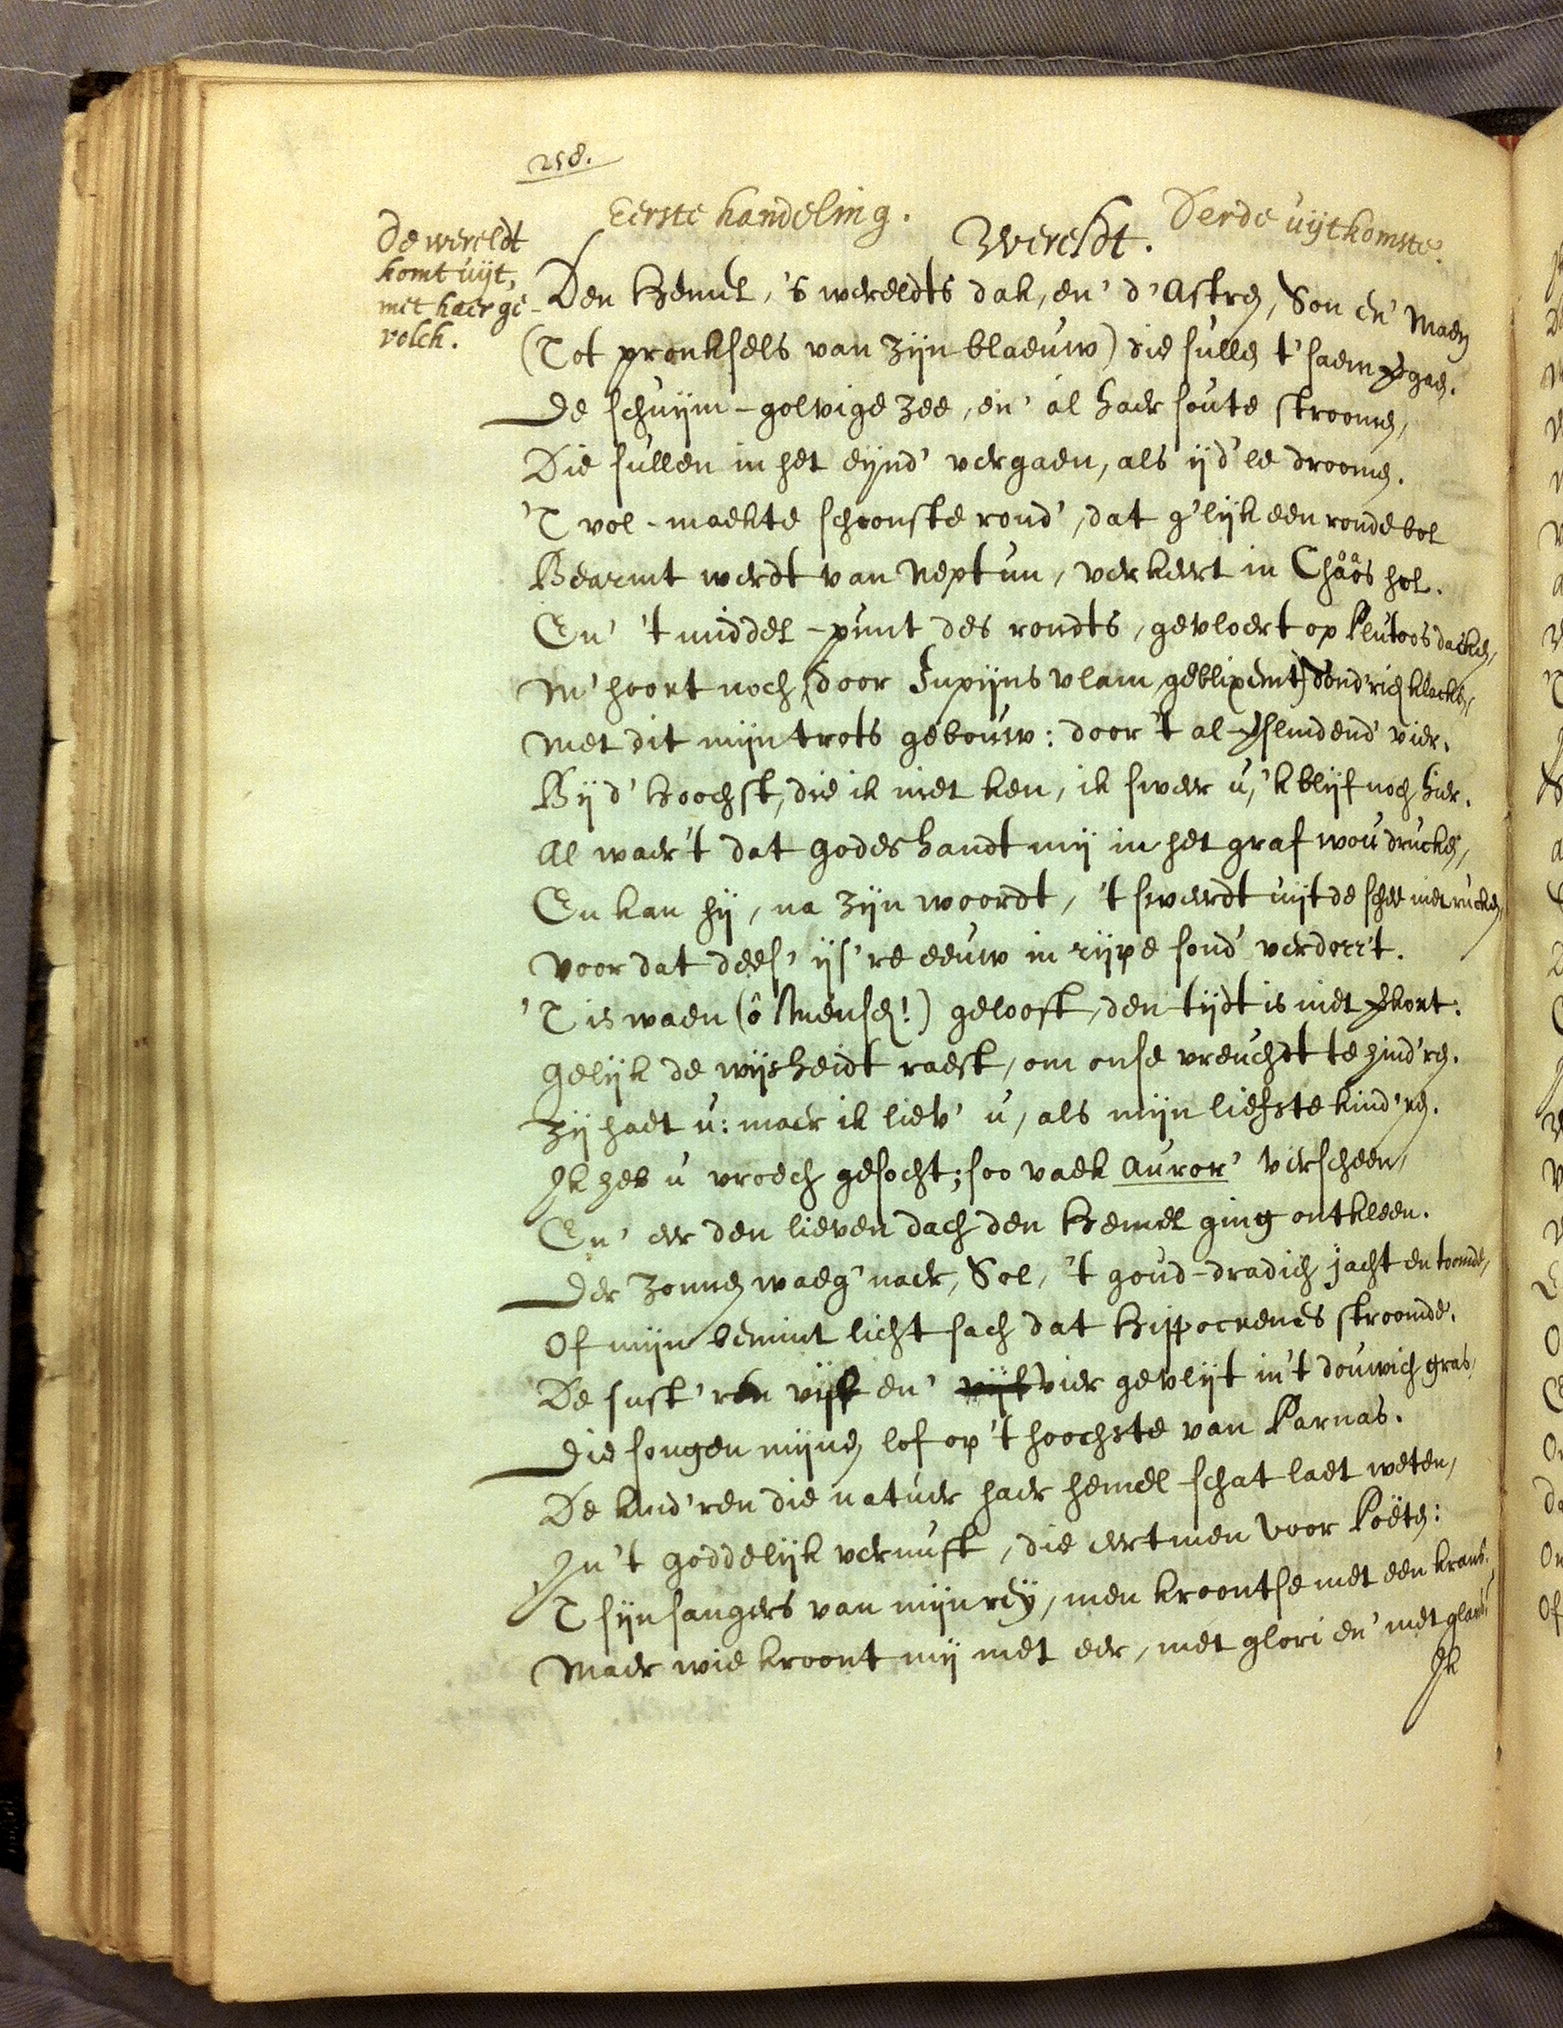 258.
Eerste handeling. Derde uijtkomste.
De wereldt
komt uijt,
met haer ge-
volch.
Wereldt.
Den Hemel, 's wereldts dak, en' d'Astren, Son en' Maen
(Tot pronksels van zijn blaeuw) die sullen t'saem vergaen.
De schuijm-golvige zee, en' al haer soute stroomen,
Die sullen in het eijnd' vergaen, als ijd'le droomen.
'T vol-maekte schoonste rond', dat g'lijk een ronde bol
Bearmt werdt van Neptun, verkeert in Chaos hol.
En' 't middel-punt des rondts, gevloert op Plutoos dacken,
M' hoort noch (door Jupijns vlam geblixemt) dond'rich klacken,
Met dit mijn trots gebouw: door 't al-verslindend' vier.
Bij d' Hoochst, die ik niet ken, ik sweer u, 'k blijf noch hier.
Al waer't dat Godes handt mij in het graf wou drucken,
En kan hij, na zijn woordt, 't sweerdt uijt de schee niet rucken,
Voor dat dees' ijs're eeuw in rijpe sond' verdorr't.
'T is waen (ô Mensen!) gelooft, den tijdt is niet verkort.
Gelijk de wijsheidt raest, om onse vreuchdt te hind'ren.
Zij haet u: maer ik liev' u, als mijn liefste kind'ren.
Ik heb u vroech gesocht; soo vaek Auror' verscheen,
En' eer den lieven dach den Hemel ging ontkleen.
Der zonnen waeg'naer, Sol, 't goud-dradich jacht en toomde,
Of mijn bemint licht sach dat Hippocrenes stroomde.
De sust'ren vijf en' vier gevlijt in't douwich gras,
Die songen mijnen lof op 't hoochste van Parnas.
De kind'ren die natuer haer hemel-schat laet weten,
In't goddelijk vernuft, die eertmen voor Poëten:
'T sijn sangers van mijn reij, men kroontse met een krans.
Maer wie kroont mij met eer, met glori en' met glans?
Ik